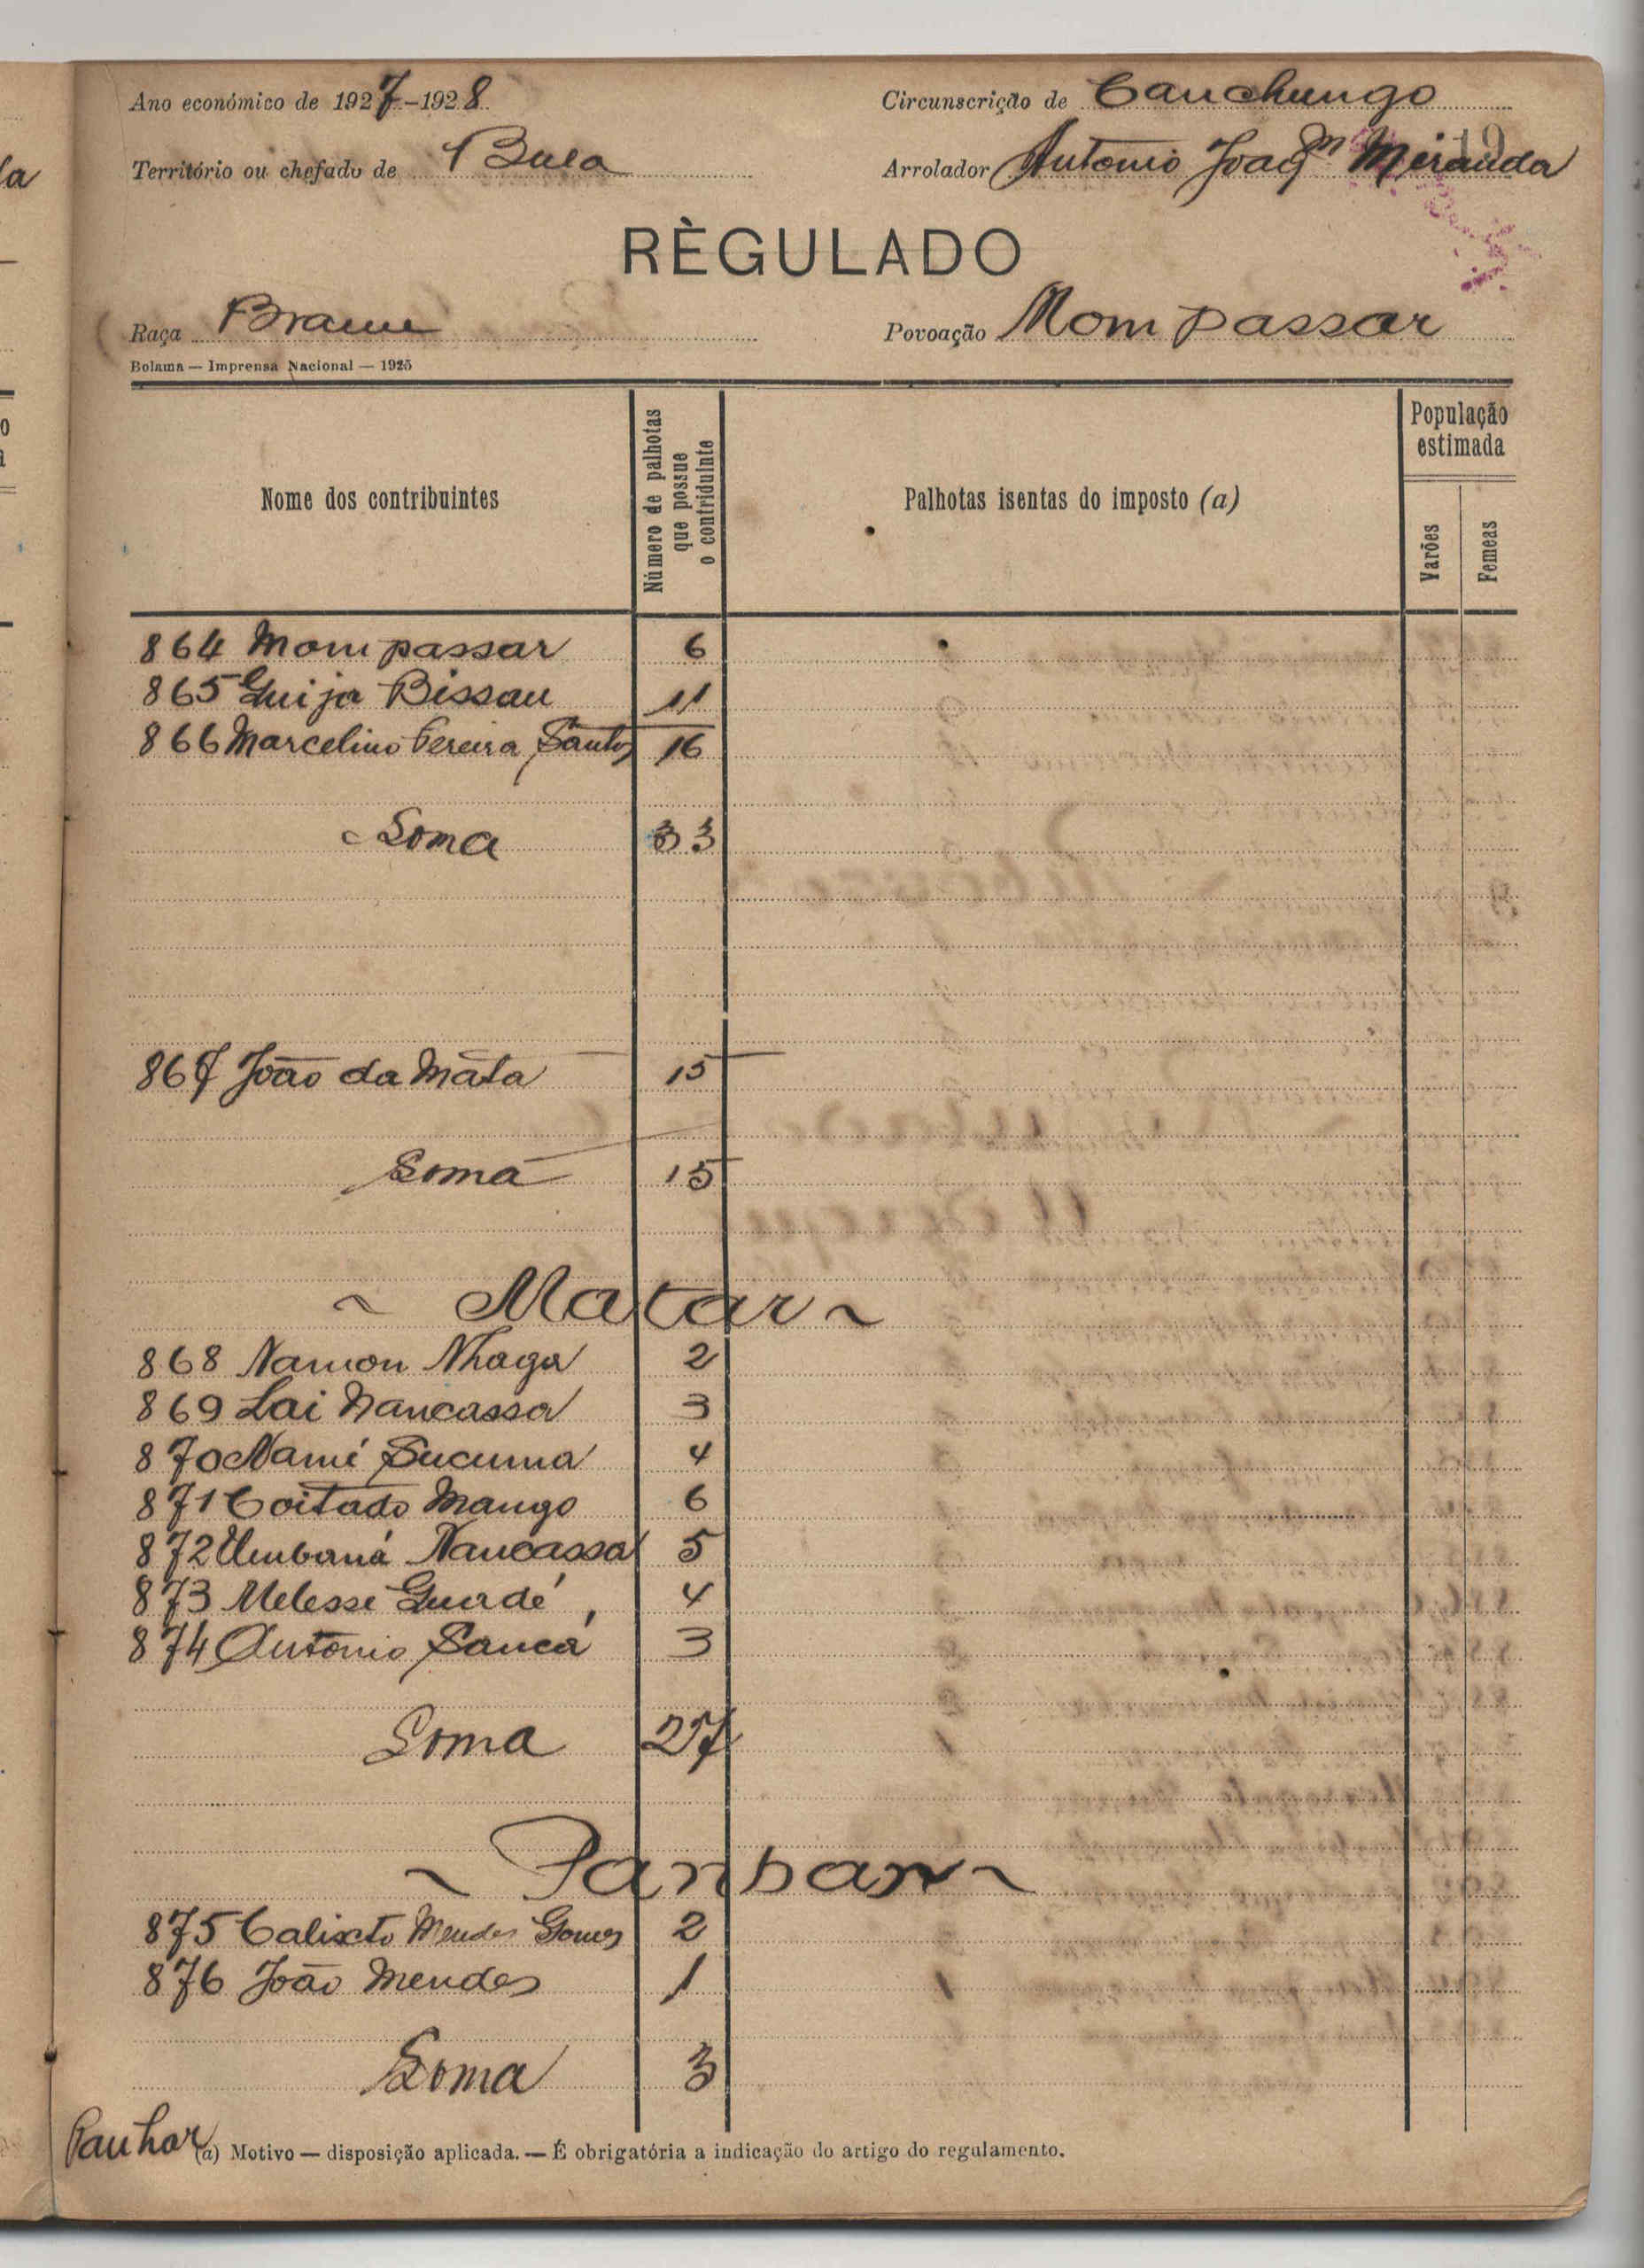 Ano económico de 1927-1928
Circunscrição de Canchungo
Território ou chefado de Bula
Arrolador Antonio Joaqm Miranda
19
RÈGULADO
Raça Brame
Povoação Mompassar
Bolama — Imprensa Nacional — 1925
Nome dos contribuintes
Número de palhotas
que possue
o contriduinte
Palhotas isentas do imposto (a)
População
estimada
Varões
Femeas
864 Mompassar 6
865 Guija Bissau 11
866 Marcelino Pereira Santos 16
Soma 33
867 João da Mata 15
Soma 15
~ Matar ~
868 Namon Nhaga 2
869 Lai Nancassa 3
870 Namé Sucuma 4
871 Coitado Mango 6
872 Umbaná Nancassa 5
873 Melesse Guadé 4
874 Antonio Sancá 3
Soma 27
~ Panban ~
875 Calixto Mendes Gomes 2
876 João Mendes 1
Soma 3
Panhar
(a) Motivo — disposição aplicada. — É obrigatória a indicação do artigo do regulamento.